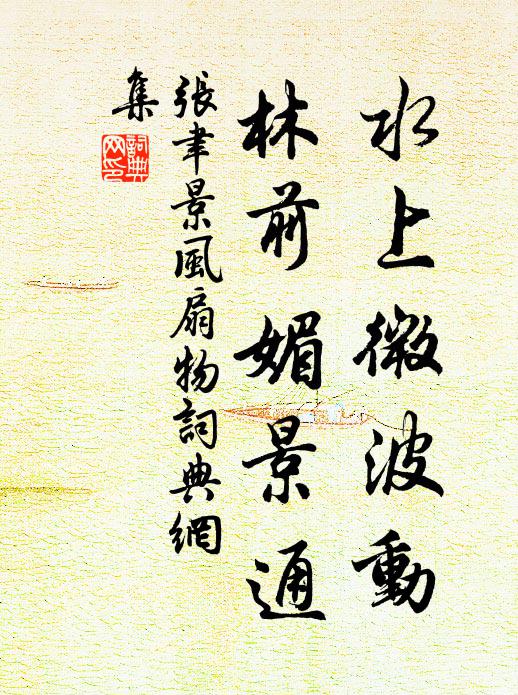 水上微波動
林前媚景通
張聿景風扇物詞典網
集
詞典網印